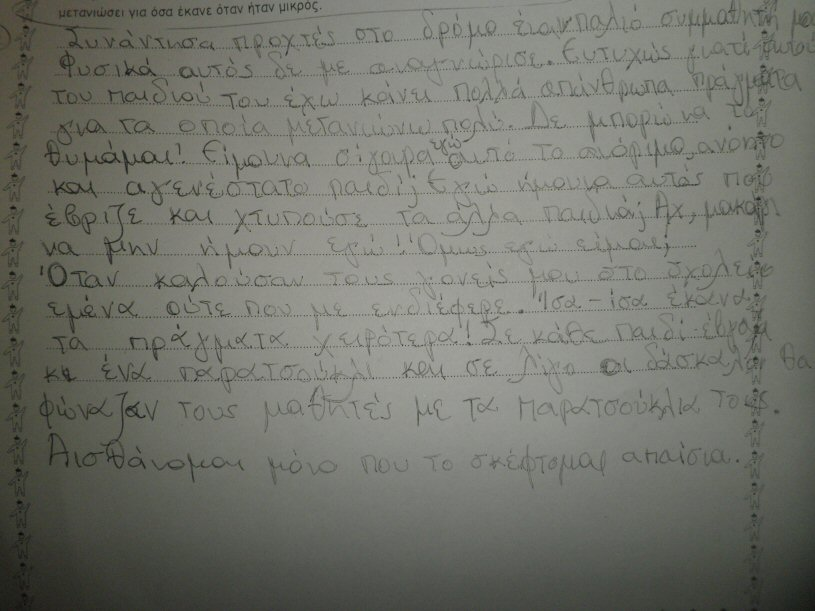 μετανιώσει για όσα έκανε όταν ήταν μικρός.
Συνάντησα προχτές στο δρόμο έναν παλιό συμμαθητή μου
Φυσικά αυτός δε με αναγνώρισε. Ευτυχώς γιατί αυτού
του παιδιού του έχω κάνει πολλά απάνθρωπα πράγματα
για τα οποία μετανιώνω πολύ. Δε μπορώ να το
θυμάμαι! Είμουνα σίγουρα εγώ αυτό το ανόητο
και αγενέστατο παιδί; Εγώ ήμουνα αυτός που
έβριζε και χτυπούσε τα άλλα παιδιά; Αχ, μακάρι
να μην ήμουν εγώ! Όμως εγώ είμαι;
Όταν καλούσαν τους γονείς μου στο σχολείο
εμένα ούτε που με ενδιέφερε. Ίσα-ίσα έκανα
τα πράγματα χειρότερα! Σε κάθε παιδί έβγαζα
κι ένα παρατσούκλι και σε λίγο οι δάσκαλοι θα
φώναζαν τους μαθητές με τα παρατσούκλια τους.
Αισθάνομαι μόνο που το σκέφτομαι απαίσια.